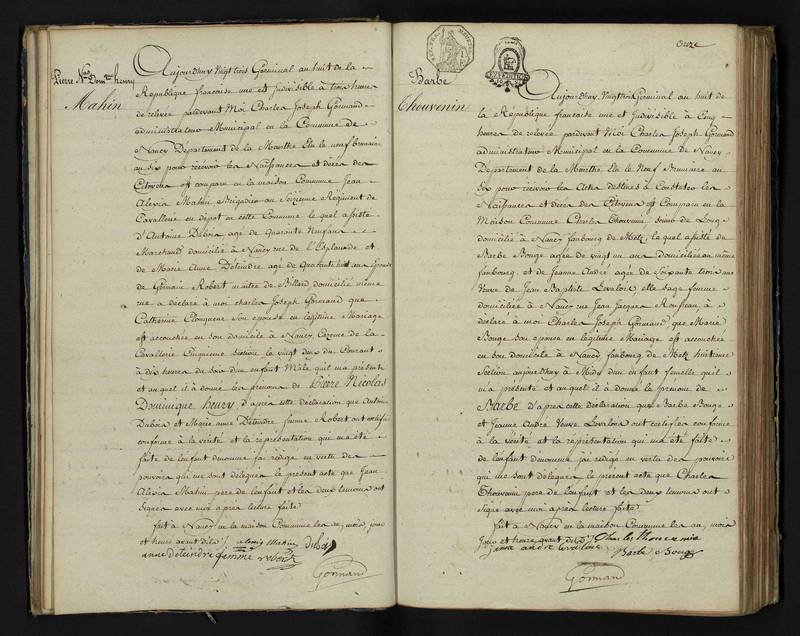 Pierre Nas Domque henry
Mahin
Aujourdhuy Vingt trois Germinal an huit de la
République francaise une et Indivisible à trois heures
de relevée pardevant Moi Charles Joseph Gormand
administrateur Municipal en la Commune de
Nancy Département de la Meurthe Elu le neuf brumaire
an six pour recevoir les Naissances et décès des
Citoyens est comparu en la maison Commune Jean
Alexis Mahin Brigadier au Seizieme Régiment de
Cavallerie en dépot en cette Commune le quel assisté
d'Antoine Dubois agé de Quarante Neuf ans
Marchand domicilié à Nancy rue de l'Esplanade et
de Marie Anne Déteindre agé de Quarante huit ans Epouse
de Germain Robert maitre de Billard domicilié même
rue a déclaré à moi charles Joseph Gormand que
Catherine son epouse en légitime Mariage
est accouchée en son domicile à Nancy, Cazerne de la
Cavallerie Cinquieme Section le vingt deux du Courant
à dix heures du Soir d'un enfant Mâle quil m'a présenté
et auquel il à donné les prénoms de Pierre Nicolas
Dominique henry, d'après cette déclaration que Antoine
Dubois et Marie anne Déteindre femme Robert ont certifié
conforme à la vérité et la représentation qui m'a été
faite de l'enfant dénommé j'ai rédigé en vertu des
pouvoirs qui me sont délégués le présent acte que Jean
Alexis Mahin pere de l'enfant et les deux temoins ont
Signés avec moi apres lecture faite
fait à Nancy en la maison Commune les an, mois, jour
et heure avant dits / alexis Mahin Dubois
anne déteindre femme robert
Gormand
onze
Barbe
Thouvenin
Aujourdhuy, Vingt trois Germinal an huit de
la République francaise une et Indivisible à Cinq
heures de relevée pardevant Moi Charles Joseph Gormand
administrateur Municipal en la Commune de Nancy
Département de la Meurthe Elu le Neuf Brumaire an
Six pour recevoir les Actes destinés à Constater les
Naissances et décès des Citoyens est Comparu en la
Maison Commune Charles Thouvenin
domicilié à Nancy faubourg de Metz, le quel assisté de
Barbe Bouge agée de vingt un ans domiciliée au même
faubourg et de Jeanne André agée de Soixante trois ans
Veuve de Jean Baptiste Levaloir elle sage femme
domiciliée à Nancy rue Jean Jacques Rousseau, à
déclaré à moi Charles Joseph Gormand que Marie
Bouge son epouse en légitime Mariage est accouchée
en son domicile à Nancy faubourg de Metz huitieme
Section aujourdhuy à Midy d'un enfant femelle quil
m'a présenté et auquel il à donné le prénom de
Barbe d'apres cette déclaration que Barbe Bouge
et Jeanne André Veuve Levaloir ont certifiés conforme
à la vérité et la représentation qui m'a été faite
de l'enfant dénommé j'ai rédigé en vertu des pouvoirs
qui me sont délégués le présent acte que Charles
Thouvenin pere de l'enfant et les deux temoins ont
Signé avec moi après lecture faite
fait à Nancy en la maison Commune les an, mois
jour et heure avant dits / Charles Thouvenin
Janne andré levaloir Barbe Bouge
Gormand